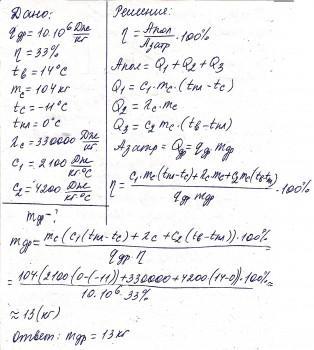 Дано:
qдр = 10·10⁶ Дж/кг
η = 33%
tв = 14°C
mс = 104 кг
tс = -11°C
tпл = 0°C
λс = 330000 Дж/кг
c₁ = 2100 Дж/кг·°C
c₂ = 4200 Дж/кг·°C
mдр - ?
Решение:
η = Aпол/Aзатр · 100%
Aпол = Q₁ + Q₂ + Q₃
Q₁ = c₁·mс·(tпл - tс)
Q₂ = λс·mс
Q₃ = c₂ mс·(tв - tпл)
Aзатр = Qдр = qдр mдр
η = c₁·mс(tпл - tс) + λс mс + c₂mс(tв - tпл) / qдр mдр · 100%
mдр = mс(c₁(tпл - tс) + λс + c₂(tв - tпл))·100% / qдр η =
= 104(2100(0-(-11)) + 330000 + 4200(14-0))·100% / 10·10⁶·33% =
≈ 13 (кг)
Ответ: mдр = 13 кг